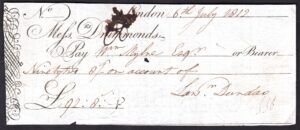 No London 6th July 1812
Messrs Drummonds.
Pay Wm Mylne Esqr or Bearer
Ninety two 8/ on account of
£92:8:-
Dundas